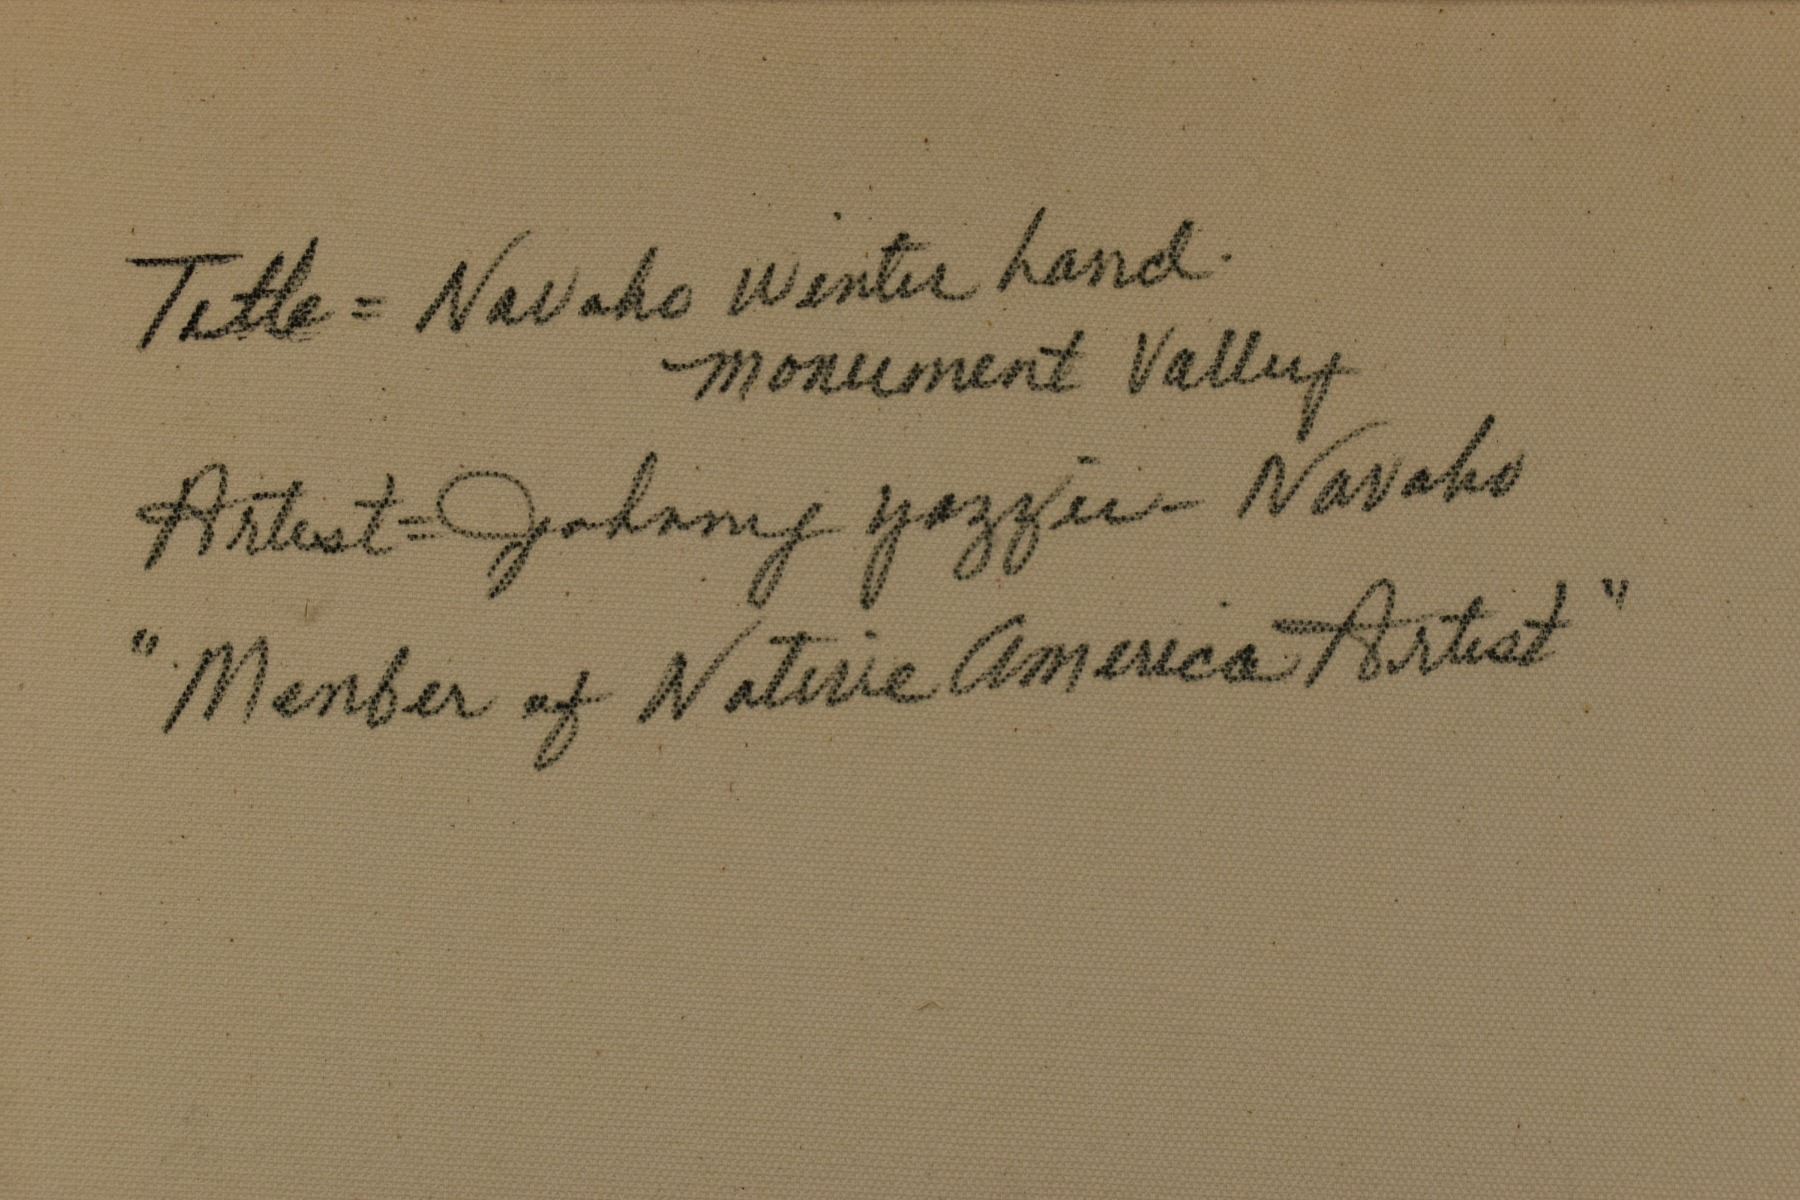 Title = Navaho Winter Land.
Monument Valley
Artist = Johnny Yazzie - Navaho
"Menber of Native America Artist"